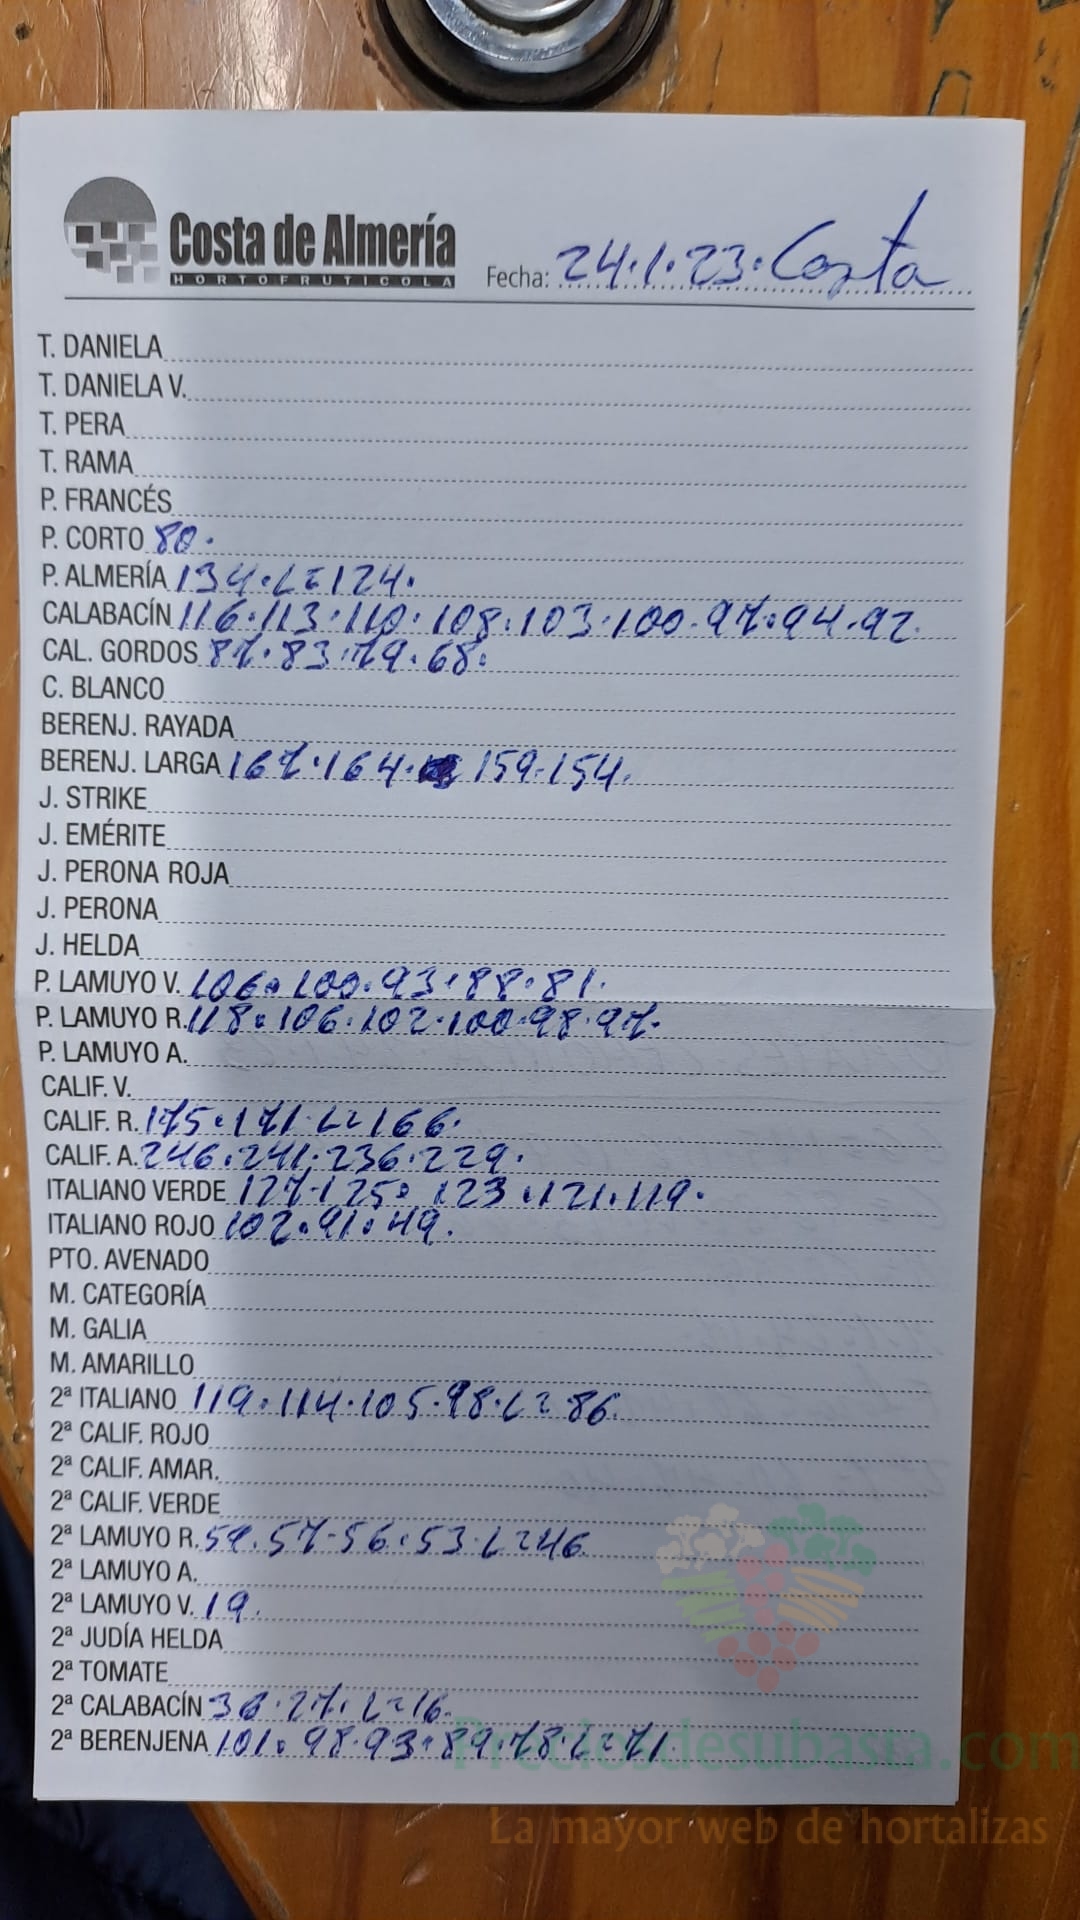 Costa de Almería
HORTOFRUTICOLA
Fecha: 24.1.23. Costa
T. DANIELA
T. DANIELA V.
T. PERA
T. RAMA
P. FRANCÉS
P. CORTO 80.
P. ALMERÍA 134.L=124.
CALABACÍN 116.113.110.108.103.100.97.94.92.
CAL. GORDOS 87.83.79.68.
C. BLANCO
BERENJ. RAYADA
BERENJ. LARGA 167.164. 159.154.
J. STRIKE
J. EMÉRITE
J. PERONA ROJA
J. PERONA
J. HELDA
P. LAMUYO V. 106.100.93.88.81.
P. LAMUYO R. 118.106.102.100.98.97.
P. LAMUYO A.
CALIF. V.
CALIF. R. 175.171.L=166.
CALIF. A. 246.241.236.229.
ITALIANO VERDE 127.125.123.121.119.
ITALIANO ROJO 102.91.49.
PTO. AVENADO
M. CATEGORÍA
M. GALIA
M. AMARILLO
2ª ITALIANO 119.114.105.98.L=86.
2ª CALIF. ROJO
2ª CALIF. AMAR.
2ª CALIF. VERDE
2ª LAMUYO R. 59.57.56.53.L=46.
2ª LAMUYO A.
2ª LAMUYO V. 19.
2ª JUDÍA HELDA
2ª TOMATE
2ª CALABACÍN 27.L=16.
2ª BERENJENA 101.98.93.89.78.L=71.
Preciosdesubasta.com
La mayor web de hortalizas